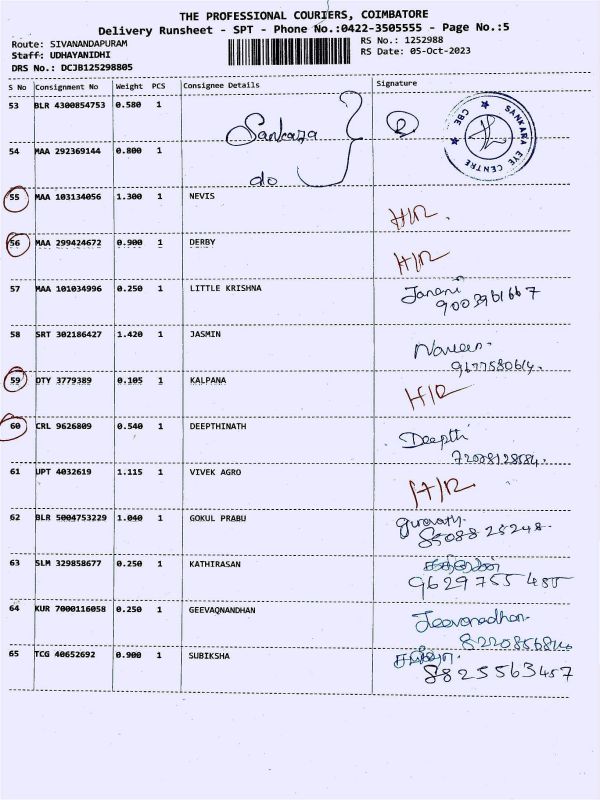 THE PROFESSIONAL COURIERS, COIMBATORE
Delivery Runsheet - SPT - Phone No.:0422-3505555 - Page No.:5
Route: SIVANANDAPURAM
Staff: UDHAYANIDHI
DRS No.: DCJB125298805
RS No.: 1252988
RS Date: 05-Oct-2023
S No Consignment No Weight PCS Consignee Details Signature
53 BLR 4300854753 0.580 1 Sankara
SANKARA EYE CENTRE CBE
54 MAA 292369144 0.800 1 do
55 MAA 103134056 1.300 1 NEVIS H/R.
56 MAA 299424672 0.900 1 DERBY H/R
57 MAA 101034996 0.250 1 LITTLE KRISHNA Janani
9003961667
58 SRT 302186427 1.420 1 JASMIN Naveen.
9677580614.
59 DTY 3779389 0.105 1 KALPANA H/R
60 CRL 9626809 0.540 1 DEEPTHINATH Deepthi
61 UPT 4032619 1.115 1 VIVEK AGRO H/R
62 BLR 5004753229 1.040 1 GOKUL PRABU
85088 25248.
63 SLM 329858677 0.250 1 KATHIRASAN
9629755 455
64 KUR 7000116058 0.250 1 GEEVAQNANDHAN Jeevanadhan
65 TCG 40652692 0.900 1 SUBIKSHA
8825563457